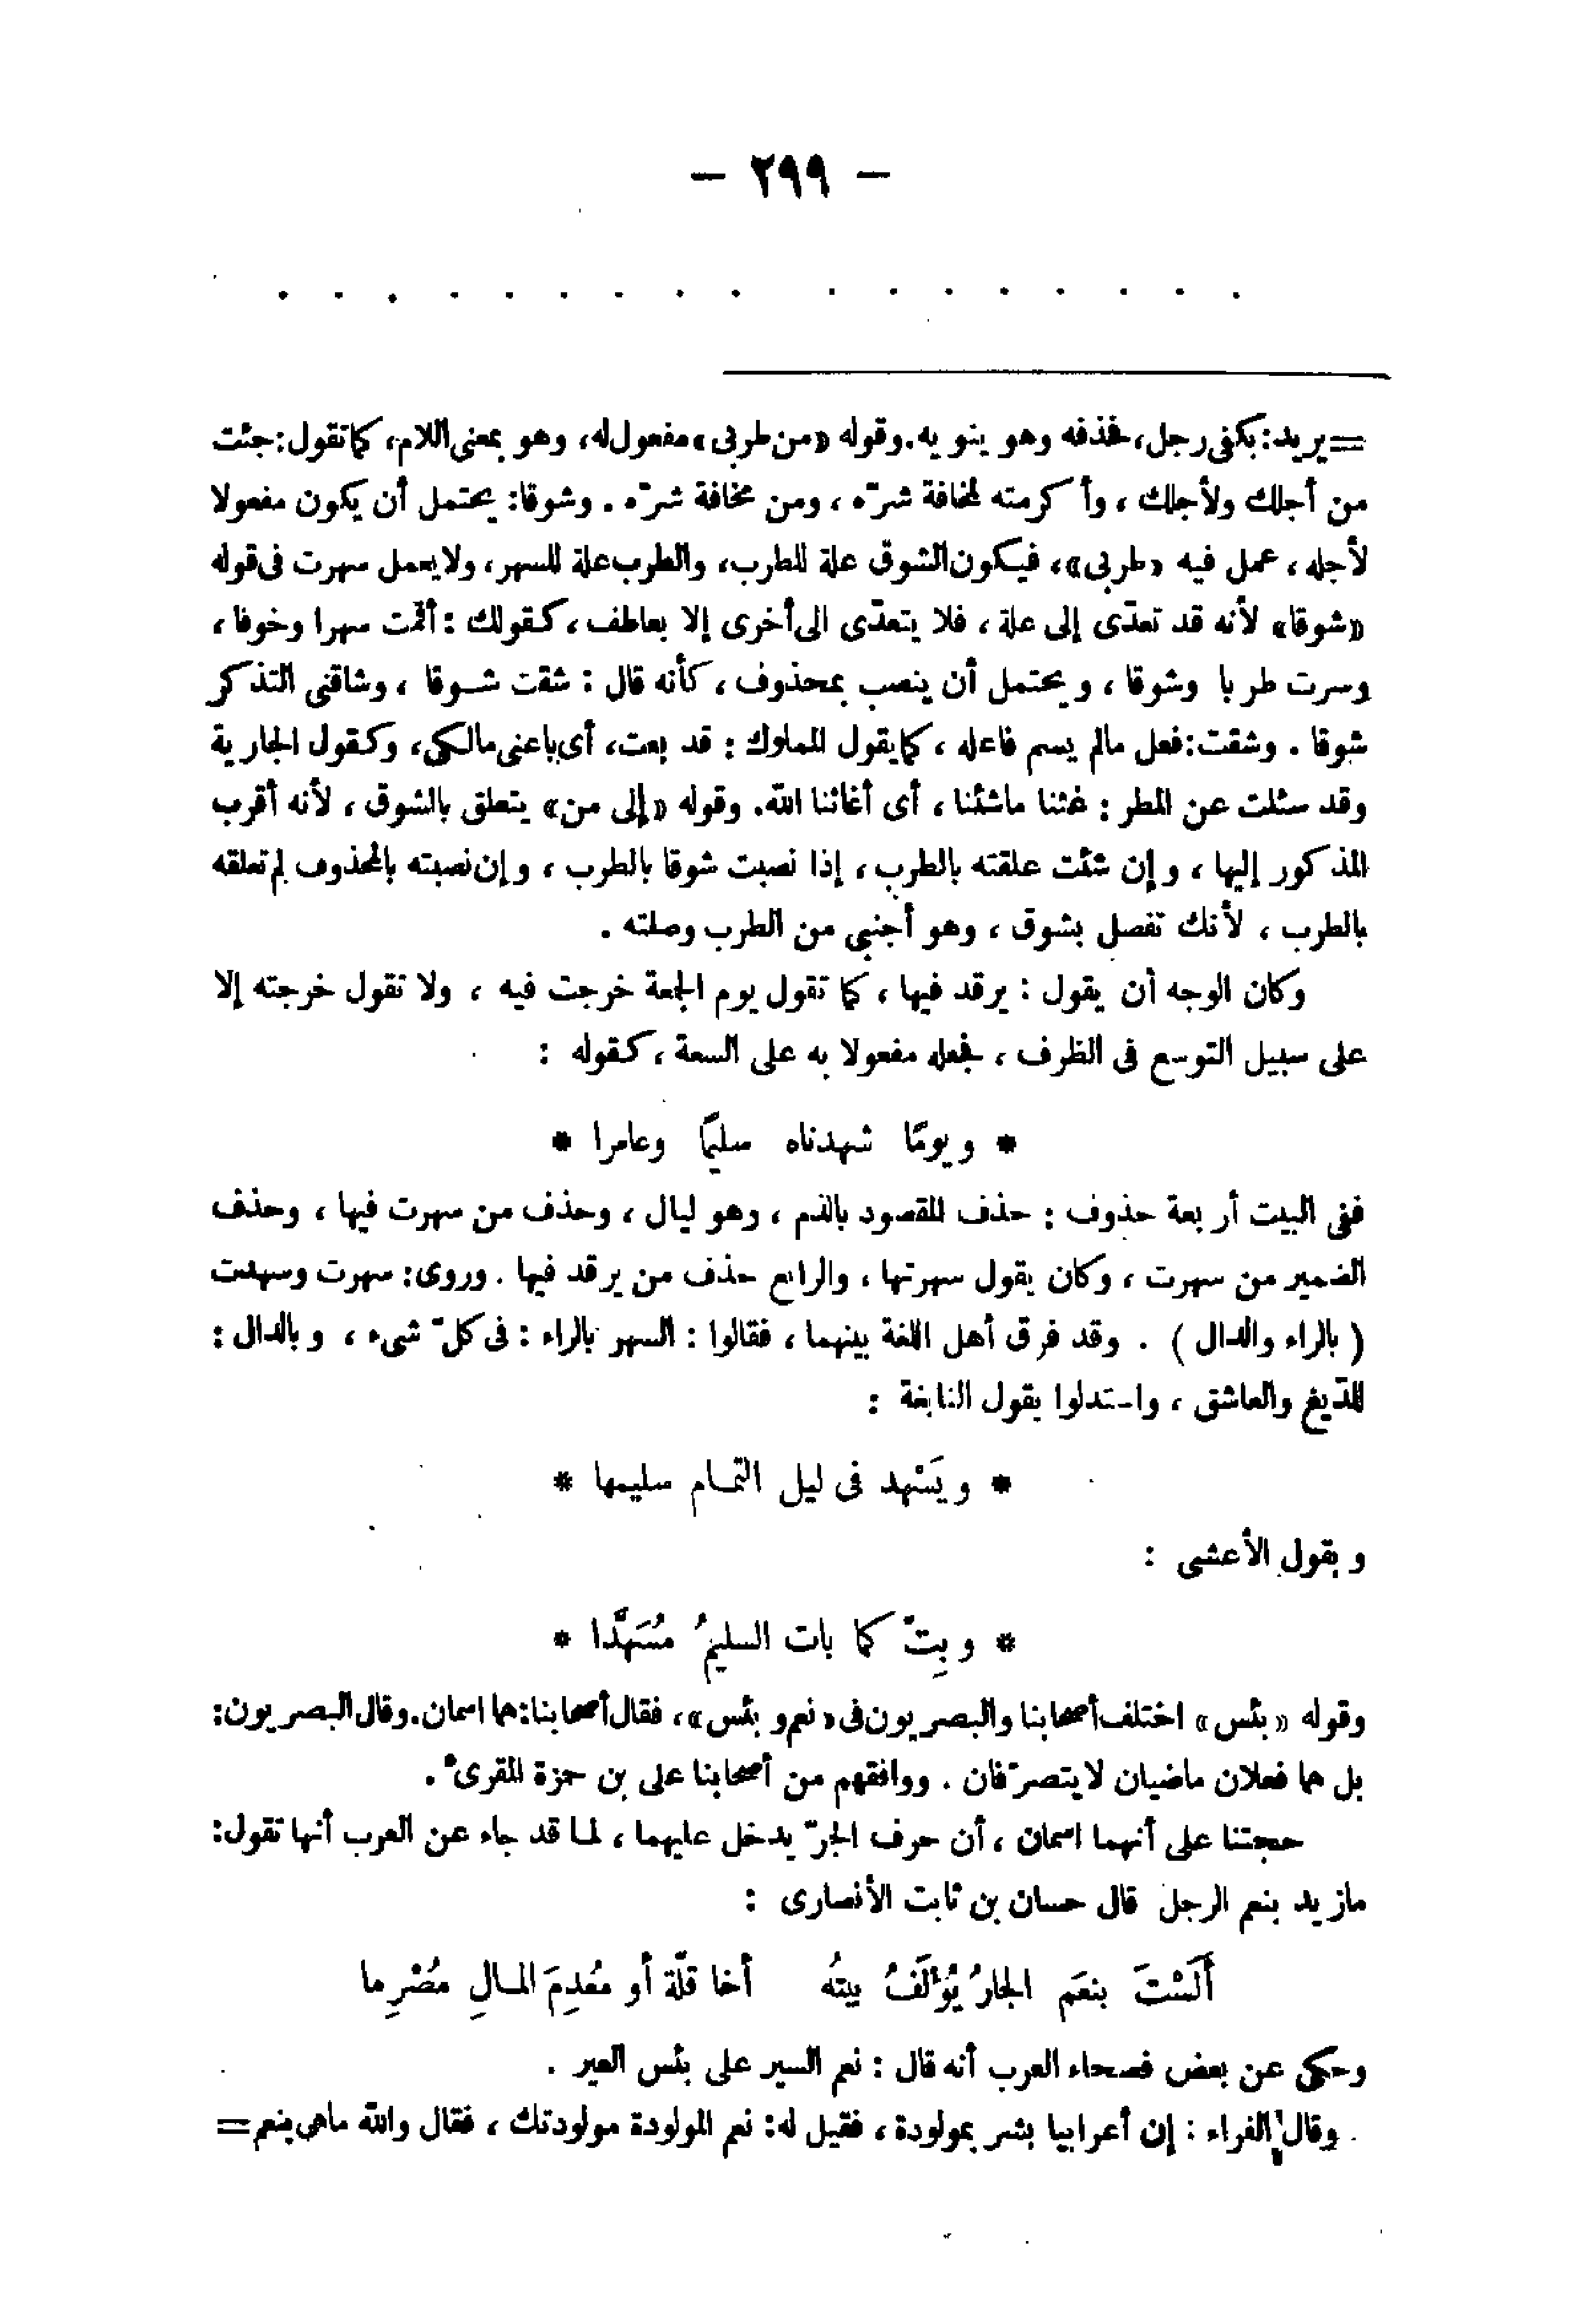 — ٢٩٩ —
. . . . . . . . . . . . . . . . .
=يريد: بكفى رجل، فحذفه وهو ينويه. وقوله «من طربى» مفعول له، وهو بمعنى اللام، كما تقول: جئت
من أجلك ولأجلك ، وأكرمته لمخافة شرّه ، ومن مخافة شرّه . وشوقا: يحتمل أن يكون مفعولا
لأجله ، عمل فيه «طربى»، فيكون الشوق علة للطرب، والطرب علة للسهر، ولا يعمل سهرت فى قوله
«شوقا» لأنه قد تعدّى إلى علة ، فلا يتعدّى الى أخرى إلا بعاطف ، كقولك : أقمت سهرا وخوفا ،
وسرت طربا وشوقا ، ويحتمل أن ينصب بمحذوف ، كأنه قال : شقت شوقا ، وشاقنى التذكر
شوقا . وشقت: فعل مالم يسم فاعله ، كما يقول المملوك : قد بعت، أى باعنى مالكى، وكقول الجارية
وقد سئلت عن المطر : غثنا ماشئنا ، أى أغاثنا الله. وقوله «إلى من» يتعلق بالشوق ، لأنه أقرب
المذكور إليها ، وإن شئت علقته بالطرب ، إذا نصبت شوقا بالطرب ، وإن نصبته بالمحذوف لم تعلقه
بالطرب ، لأنك تفصل بشوق ، وهو أجنبى من الطرب وصلته .
وكان الوجه أن يقول : يرقد فيها ، كما تقول يوم الجمعة خرجت فيه ، ولا تقول خرجته إلا
على سبيل التوسع فى الظرف ، فجعله مفعولا به على السعة ، كقوله :
* ويومًا شهدناه سليمًا وعامرا *
ففى البيت أربعة حذوف : حذف المقصود بالذم ، وهو ليال ، وحذف من سهرت فيها ، وحذف
الضمير من سهرت ، وكان يقول سهرتها ، والرابع حذف من يرقد فيها . وروى: سهرت وسهدت
( بالراء والدال ) . وقد فرق أهل اللغة بينهما ، فقالوا : السهر بالراء : فى كلّ شىء ، وبالدال :
للديغ والعاشق ، واستدلوا بقول النابغة :
* ويَسْهد فى ليل التمام سليمها *
وبقول الأعشى :
* وبِتّ كما بات السليمُ مُسَهَّدا *
وقوله «بئس» اختلف أصحابنا والبصريون فى «نعم و بئس»، فقال أصحابنا: هما اسمان. وقال البصريون:
بل هما فعلان ماضيان لا يتصرّفان . ووافقهم من أصحابنا على بن حمزة المقرئ .
حجتنا على أنهما اسمان ، أن حرف الجرّ يدخل عليهما ، لما قد جاء عن العرب أنها تقول:
مازيد بنعم الرجل قال حسان بن ثابت الأنصارى :
ألَسْتَ بنعَم الجارُ يُؤْلَفُ بيتُه أخا قلّة أو مُعدِمَ المالِ مُصْرِما
وحكى عن بعض فصحاء العرب أنه قال : نعم السير على بئس العير .
وقال الفراء : إن أعرابيا بشر بمولودة ، فقيل له: نعم المولودة مولودتك ، فقال والله ماهى بنعم=